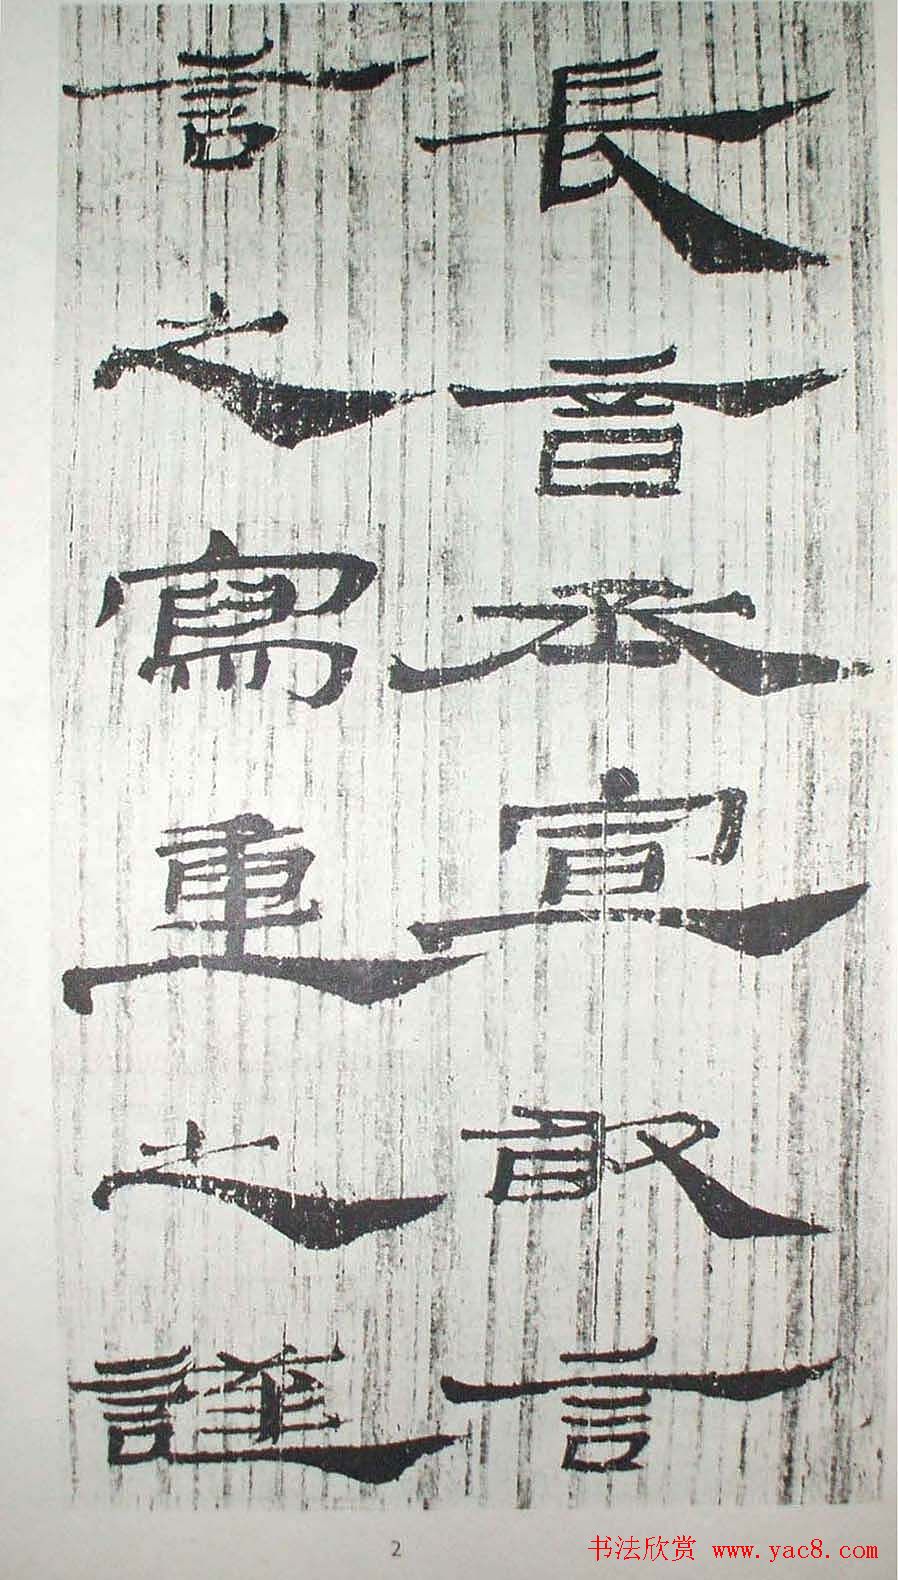 長音丞宣敢言
言之寫重之謹
2
书法欣赏 www.yac8.com